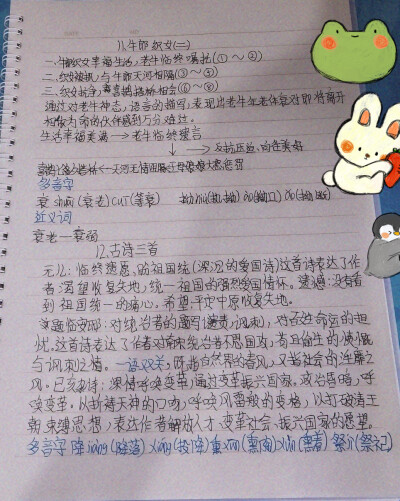 11.牛郎织女(二)
一、牛郎织女幸福生活,老牛临终嘱托(①～②)
二、织女被抓,与牛郎天河相隔(③～⑤)
三、织女抗争,喜鹊搭桥相会(⑥～⑨)
通过对老牛神态,语言的描写,表现出老牛年老体衰对即将离开
相依为命的伙伴感到万分难过。
生活幸福美满→老牛临终遗言
反抗压迫,向往美好
天河无情阻隔
多音字
衰 shuāi (衰老) cuī (等衰)
近义词
衰老—衰弱
12.古诗三首
示儿:临终遗愿、盼祖国统一(深沉的爱国诗)这首诗表达了作
者渴望收复失地,统一祖国的强烈爱国情怀。遗憾:没有看
到祖国统一的痛心。希望:平定中原收复失地。
题临安邸:对统治者的谴责,讽刺,对国家命运的担
忧。这首诗表达了作者对南宋统治者不思国攻,苟且偷生的愤慨
与讽刺之情。一语双关。既指自然界的春风,又指社会的淫靡之
风。己亥杂诗:深情呼唤变革,通过变革振兴国家。政治昏暗,呼
唤变革。以祈祷天神的口吻,呼唤风雷般的变格,以打破清王
朝束缚思想,表达作者解放人才、变革社会、振兴国家的愿望。
多音字 降 jiàng (降落) xiáng (投降)